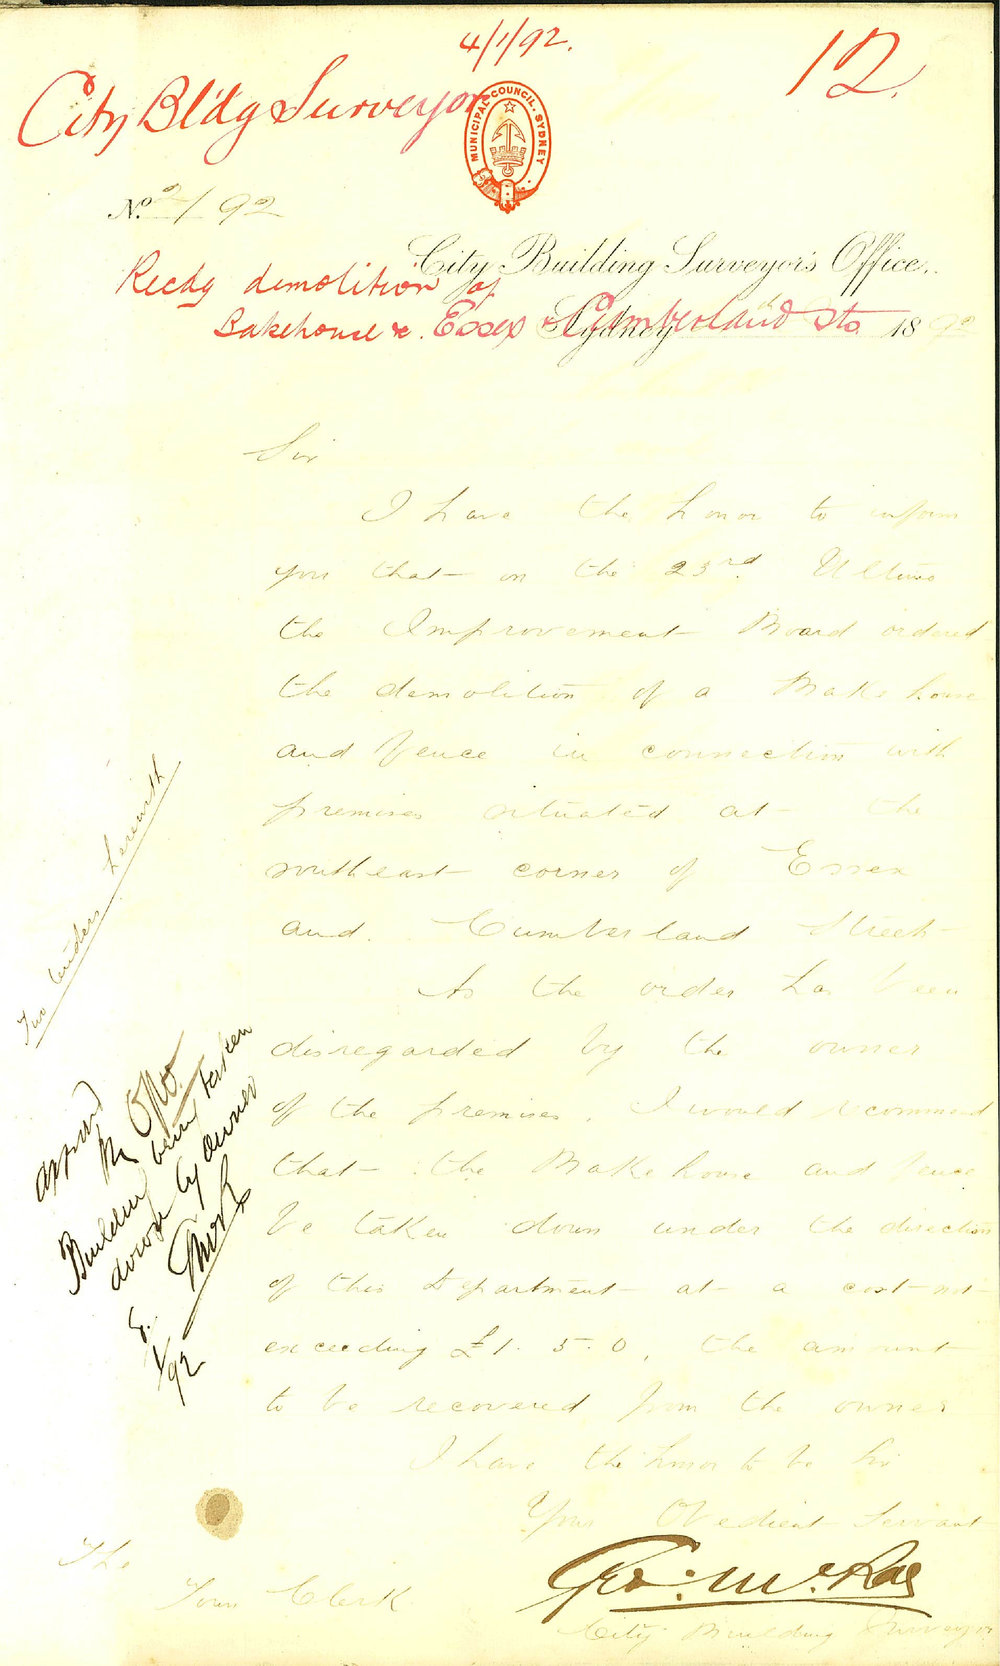 4/1/92.
12.
City Bldg Surveyor
MUNICIPAL COUNCIL. SYDNEY
No. 2/92
City Building Surveyor's Office,
Recdg demolition of
Bakehouse &c. Essex & Cumberland Sts.
Sydney 1892
Sir
I have the honor to inform
you that on the 23rd. Ultimo
the Improvement Board ordered
the demolition of a Bake house
and fence in connection with
premises situated at the
southeast corner of Essex
and Cumberland Street
As the order has been
disregarded by the owner
of the premises, I would recommend
that the Bakehouse and fence
be taken down under the direction
of this Department at a cost not
exceeding £1.5.0, the amount
to be recovered from the owner
I have the honor to be Sir
Your Obedient Servant
Geo: McRae
City Building Surveyor
The
Town Clerk
Two tenders herewith
Building being taken
down by owner
1/92